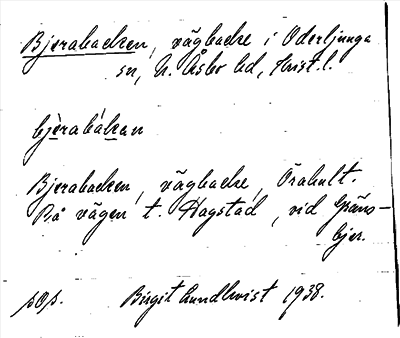 Bjerabacken, vägbacke i Oderljunga
sn, N. Åsbo hd, Krist. l.
bjèrabákan
Bjerabacken, vägbacke, Örahult.
På vägen t. Hagstad, vid Gräns-
bjer.
pOp. Birgit Lundkvist 1938.